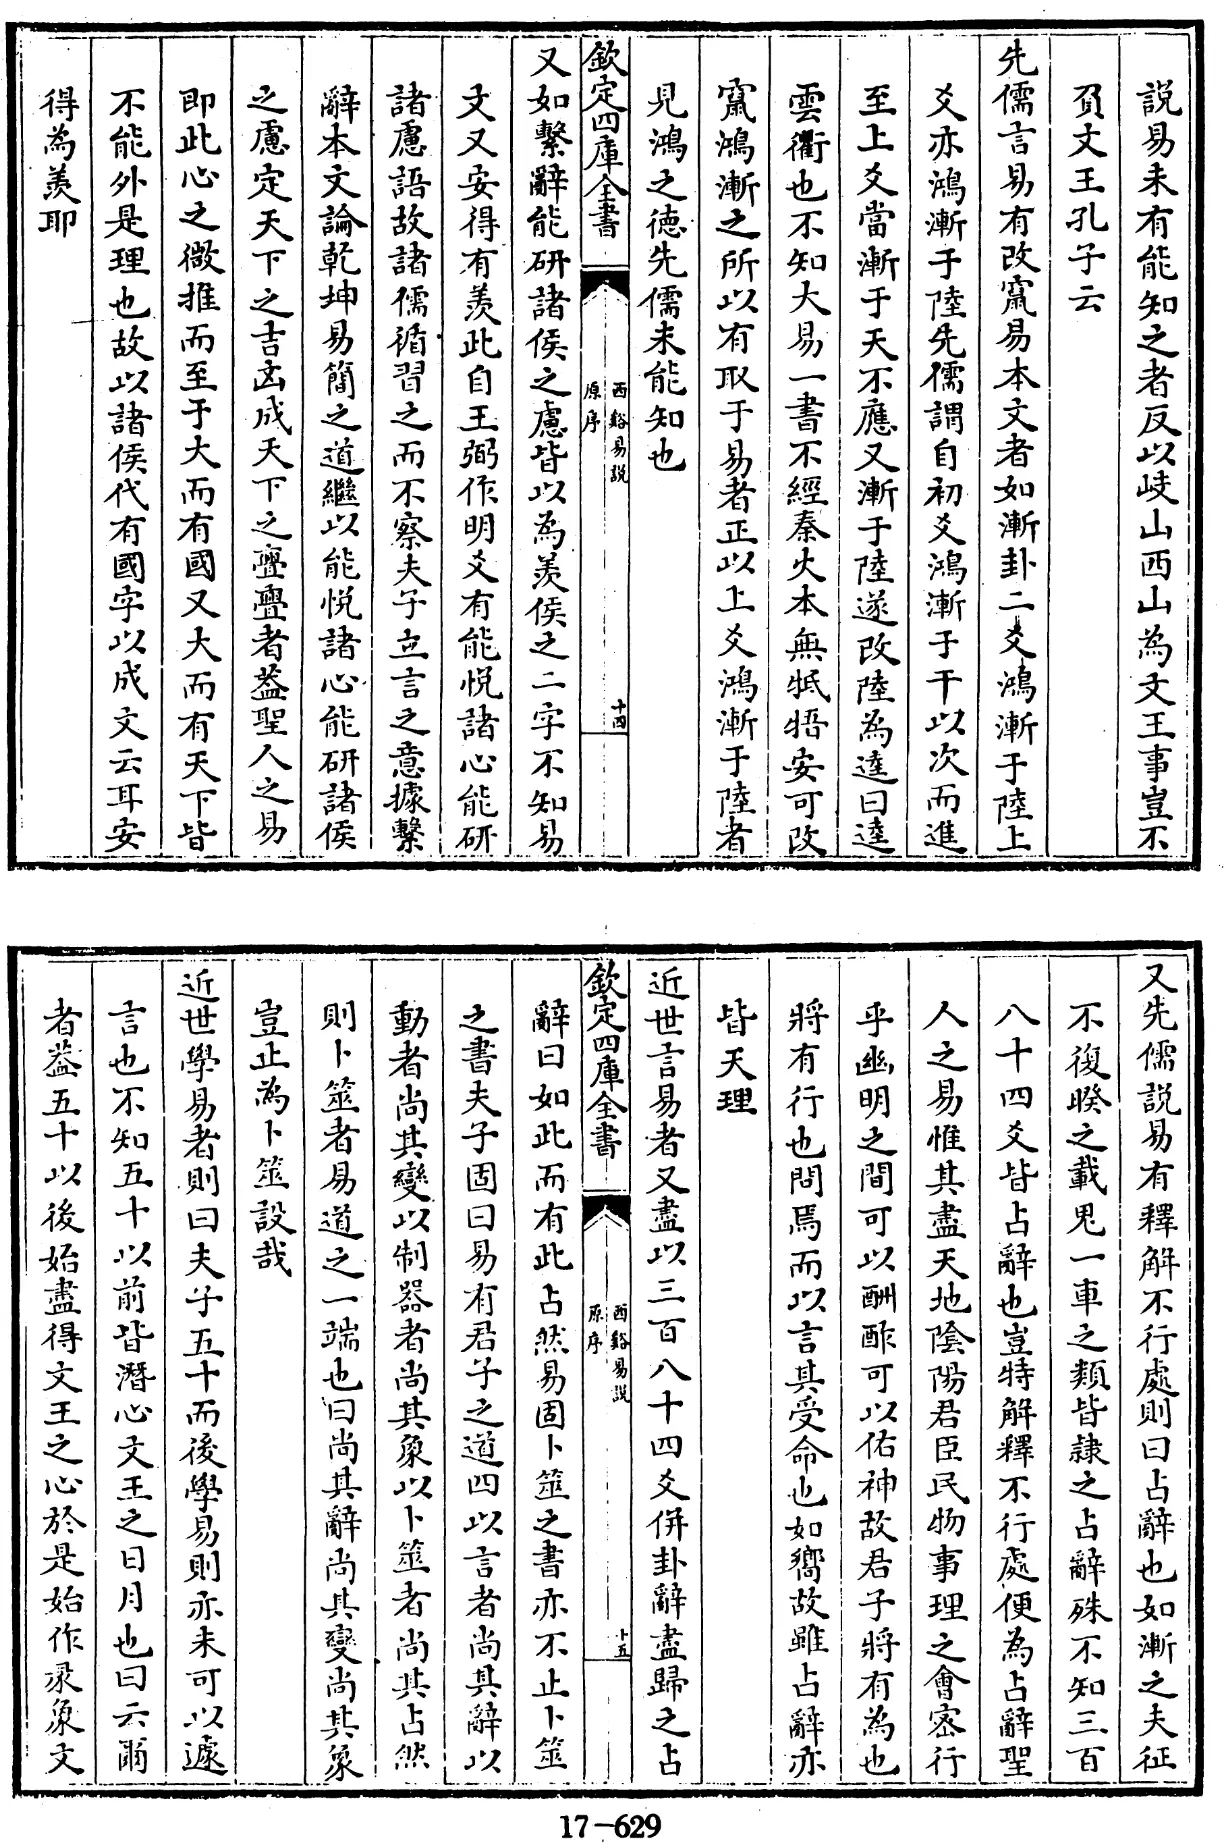 說易未有能知之者反以岐山西山為文王事豈不
頁文王孔子云
先儒言易有改竄易本文者如漸卦二爻鴻漸于陸上
爻亦鴻漸于陸先儒謂自初爻鴻漸于干以次而進
至上爻當漸于天不應又漸于陸遂改陸為逵曰逵
雲衢也不知大易一書不經秦火本無牴牾安可改
竄鴻漸之所以有取于易者正以上爻鴻漸于陸者
見鴻之德先儒未能知也
欽定四庫全書
西谿易說
原序
十四
又如繫辭能研諸侯之慮皆以為羨侯之二字不知易
文又安得有羨此自王弼作明爻有能悅諸心能研
諸慮語故諸儒循習之而不察夫子立言之意據繫
辭本文論乾坤易簡之道繼以能悅諸心能研諸侯
之慮定天下之吉凶成天下之亹亹者蓋聖人之易
即此心之微推而至于大而有國又大而有天下皆
不能外是理也故以諸侯代有國字以成文云耳安
得為羨耶
又先儒說易有釋解不行處則曰占辭也如漸之夫征
不復暌之載鬼一車之類皆隸之占辭殊不知三百
八十四爻皆占辭也豈特解釋不行處便為占辭聖
人之易惟其盡天地陰陽君臣民物事理之會宻行
乎幽明之間可以酬酢可以佑神故君子將有為也
將有行也問焉而以言其受命也如嚮故雖占辭亦
皆天理
近世言易者又盡以三百八十四爻併卦辭盡歸之占
欽定四庫全書
西谿易說
原序
十五
辭曰如此而有此占然易固卜筮之書亦不止卜筮
之書夫子固曰易有君子之道四以言者尚其辭以
動者尚其變以制器者尚其象以卜筮者尚其占然
則卜筮者易道之一端也曰尚其辭尚其變尚其象
豈止為卜筮設哉
近世學易者則曰夫子五十而後學易則亦未可以遽
言也不知五十以前皆潛心文王之日月也曰云爾
者蓋五十以後始盡得文王之心於是始作彖象文
17-629